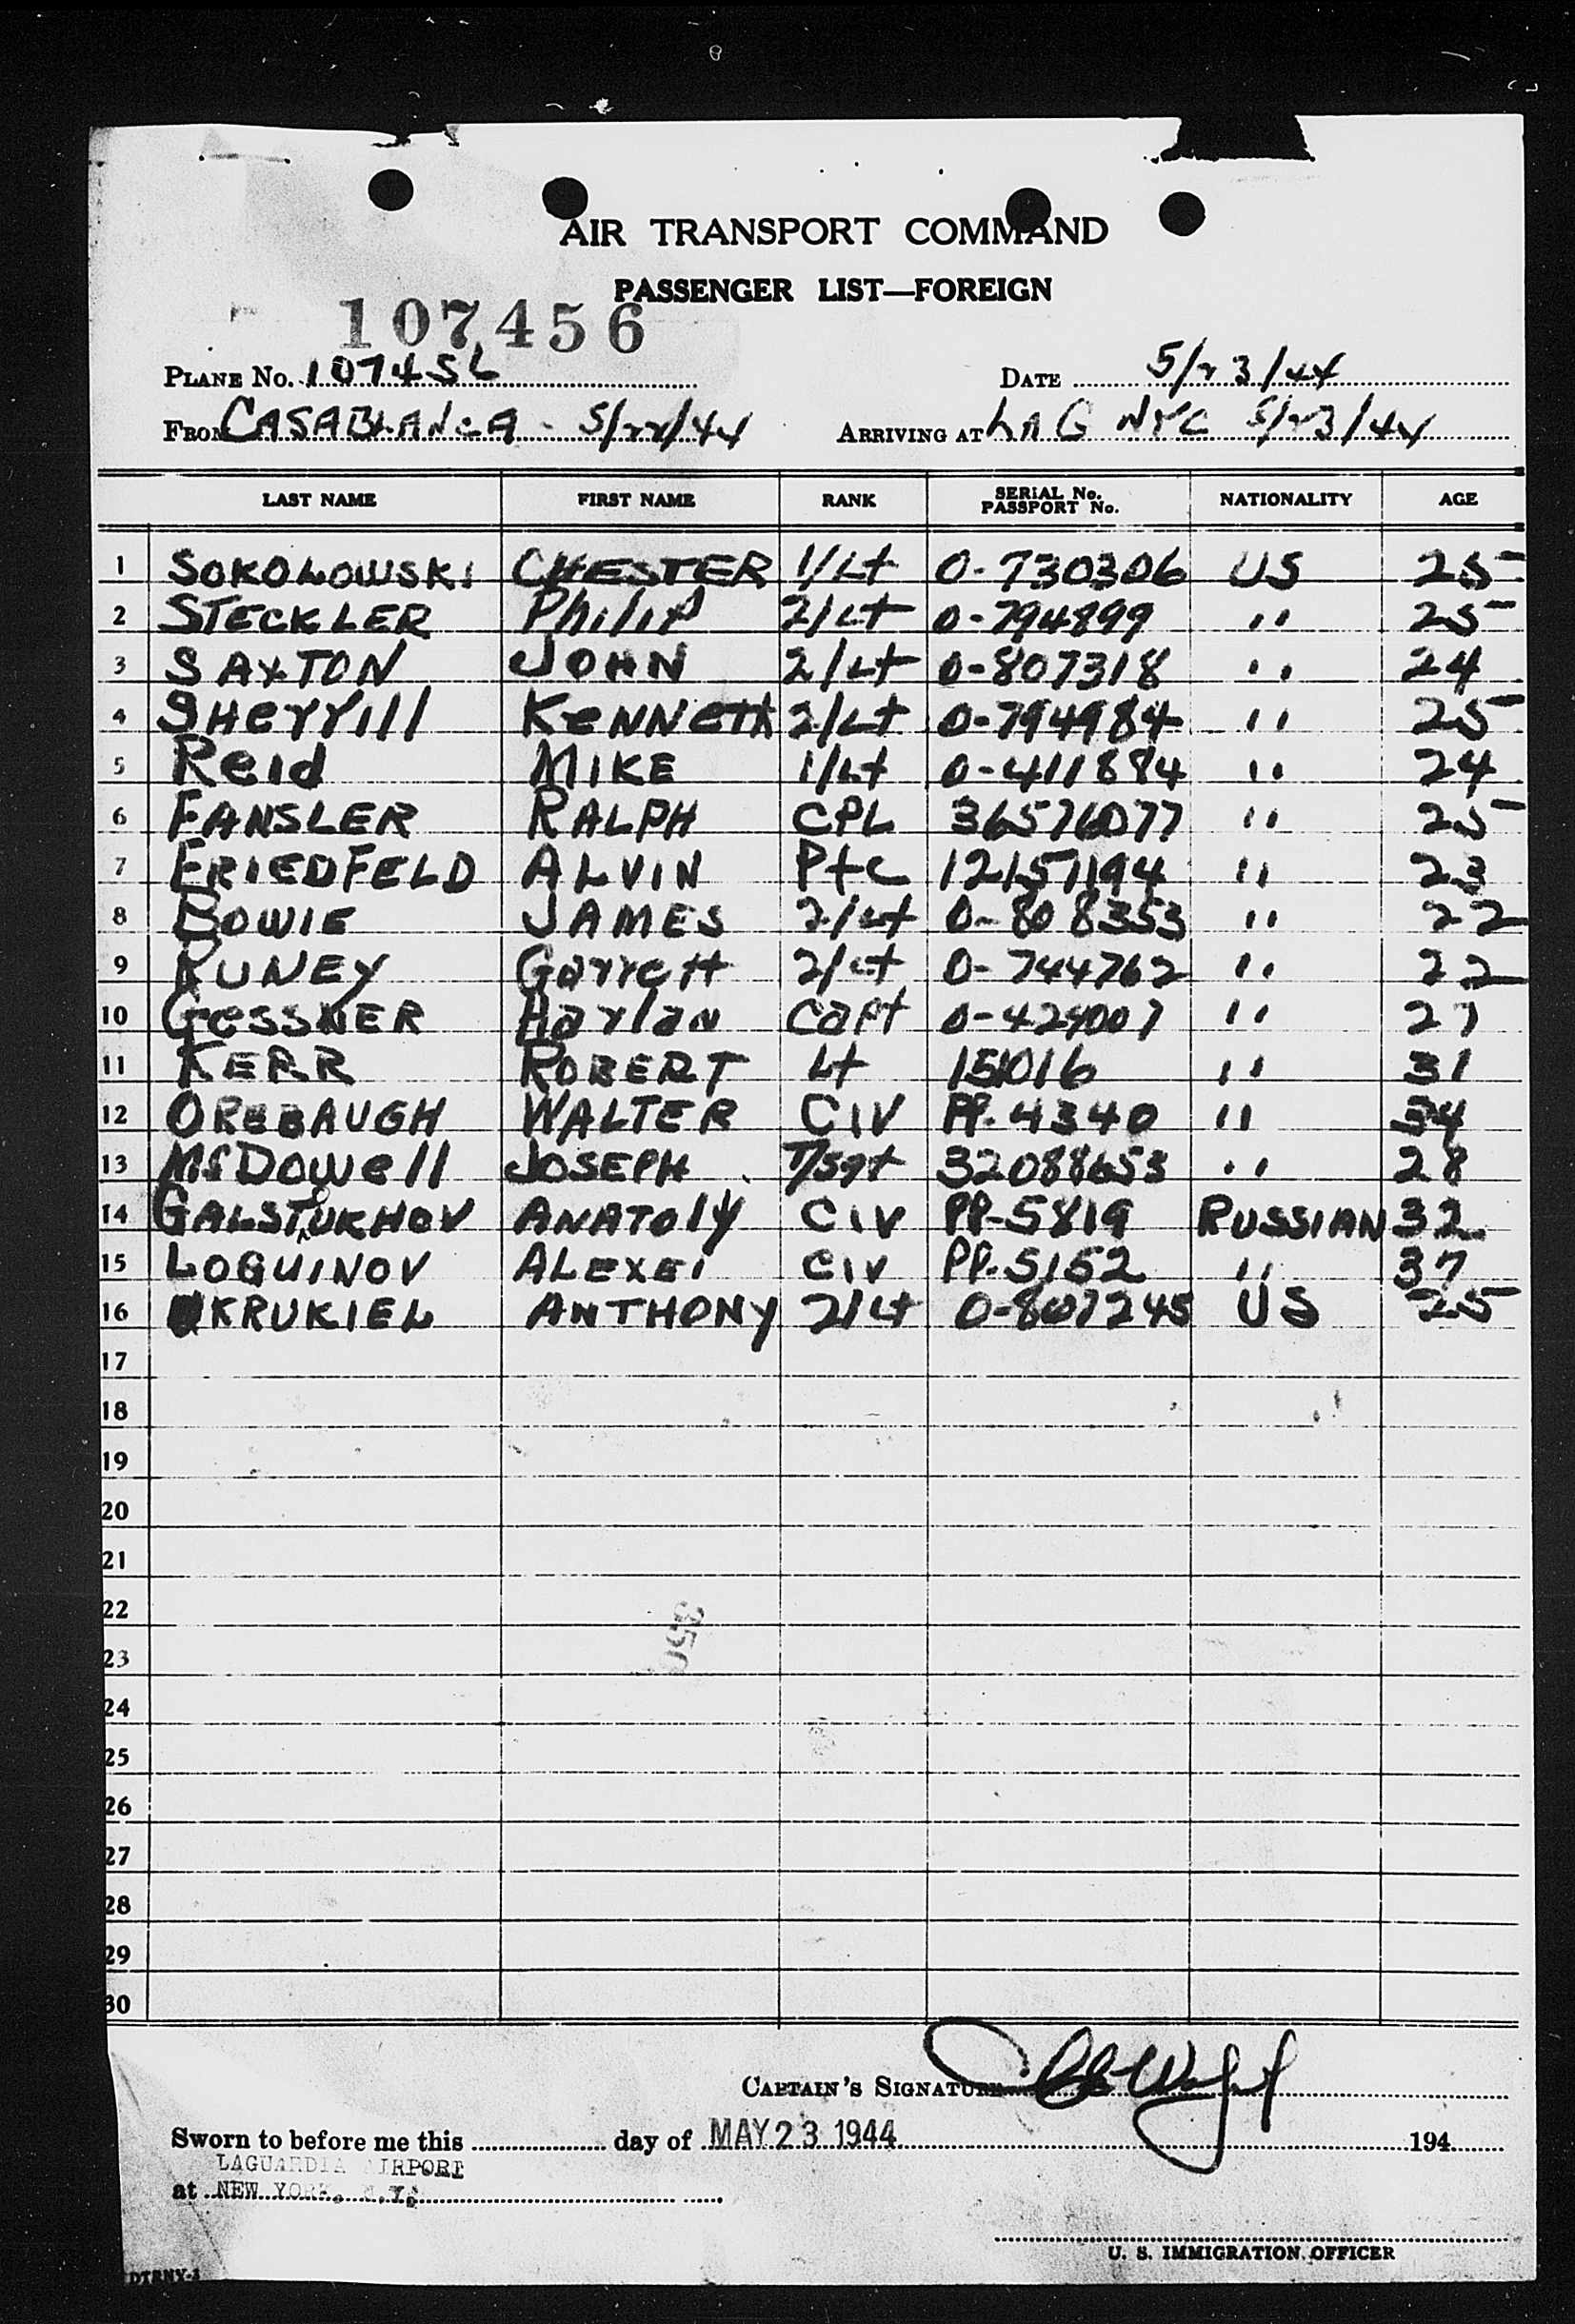 AIR TRANSPORT COMMAND
PASSENGER LIST—FOREIGN
107456
PLANE No. 107456 DATE 5/23/44
FROM CASABLANCA - 5/22/44 ARRIVING AT LAG NYC 5/23/44
LAST NAME FIRST NAME RANK SERIAL No. PASSPORT No. NATIONALITY AGE
1 SOKOLOWSKI CHESTER 1/Lt 0-730306 US 25
2 STECKLER Philip 2/Lt 0-794899 " 25
3 SAXTON JOHN 2/Lt 0-807318 " 24
4 SHerrill KeNNetH 2/Lt 0-794984 " 25
5 Reid MIKE 1/Lt 0-411884 " 24
6 FANSLER RALPH CPL 36576077 " 25
7 FRIEDFELD ALVIN Pfc 12157194 " 23
8 BOWIE JAMES 2/Lt 0-808353 " 22
9 RUNEY Garrett 2/Lt 0-744762 " 22
10 GesSNER Harlan Capt 0-424007 " 27
11 KERR ROBERT Lt 151016 " 31
12 OREBAUGH WALTER CIV PP-4340 " 34
13 McDowell JOSEPH T/Sgt 32088653 " 28
14 GALSTUKHOV ANATOLY CIV PP-5819 RUSSIAN 32
15 LOGUINOV ALEXEI CIV PP-5152 " 37
16 KRUKIEL ANTHONY 2/Lt 0-807245 US 25
17
18
19
20
21
22
23
24
25
26
27
28
29
30
CAPTAIN'S SIGNATURE
Sworn to before me this day of MAY 23 1944 194
LAGUARDIA AIRPORT
at NEW YORK, N.Y.
U. S. IMMIGRATION OFFICER